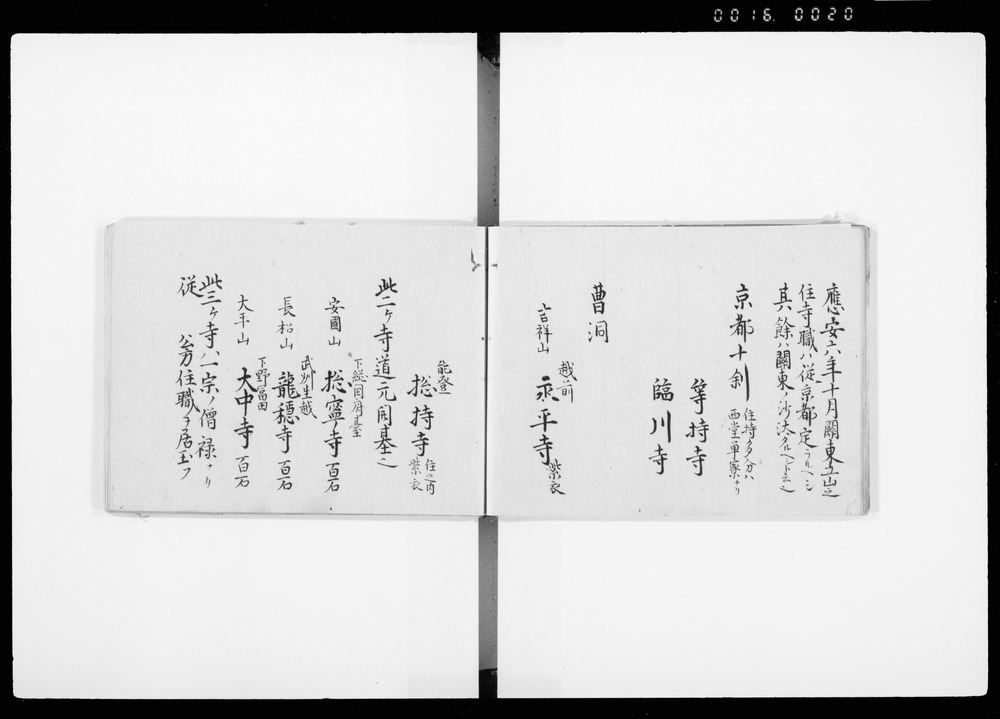 0016. 0020
應安六年十月關東五山之
住寺職ハ從京都定ラルヘシ
其餘ハ關東ノ沙汰タルヘシト云々
京都十刹 住持多分ハ
西堂單寮ナリ
等持寺
臨川寺
曹洞
越前
吉祥山 永平寺 紫衣
能登
総持寺 住之内
紫衣
此二ヶ寺道元開基之
下総国府臺
安國山 総寧寺 百石
武州生越
長松山 龍穏寺 百石
下野冨田
大平山 大中寺 百石
此三ヶ寺ハ一宗ノ僧禄ナリ
從
公方住職ヲ居玉フ